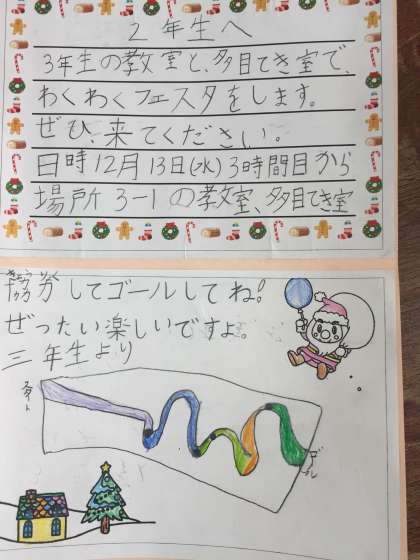 2年生へ
3年生の教室と、多目てき室で、
わくわくフェスタをします。
ぜひ、来てください。
日時12月13日(水)3時間目から
場所3-1の教室、多目てき室
してゴールしてね!
ぜったい楽しいですよ。
三年生より
スタート
ゴール